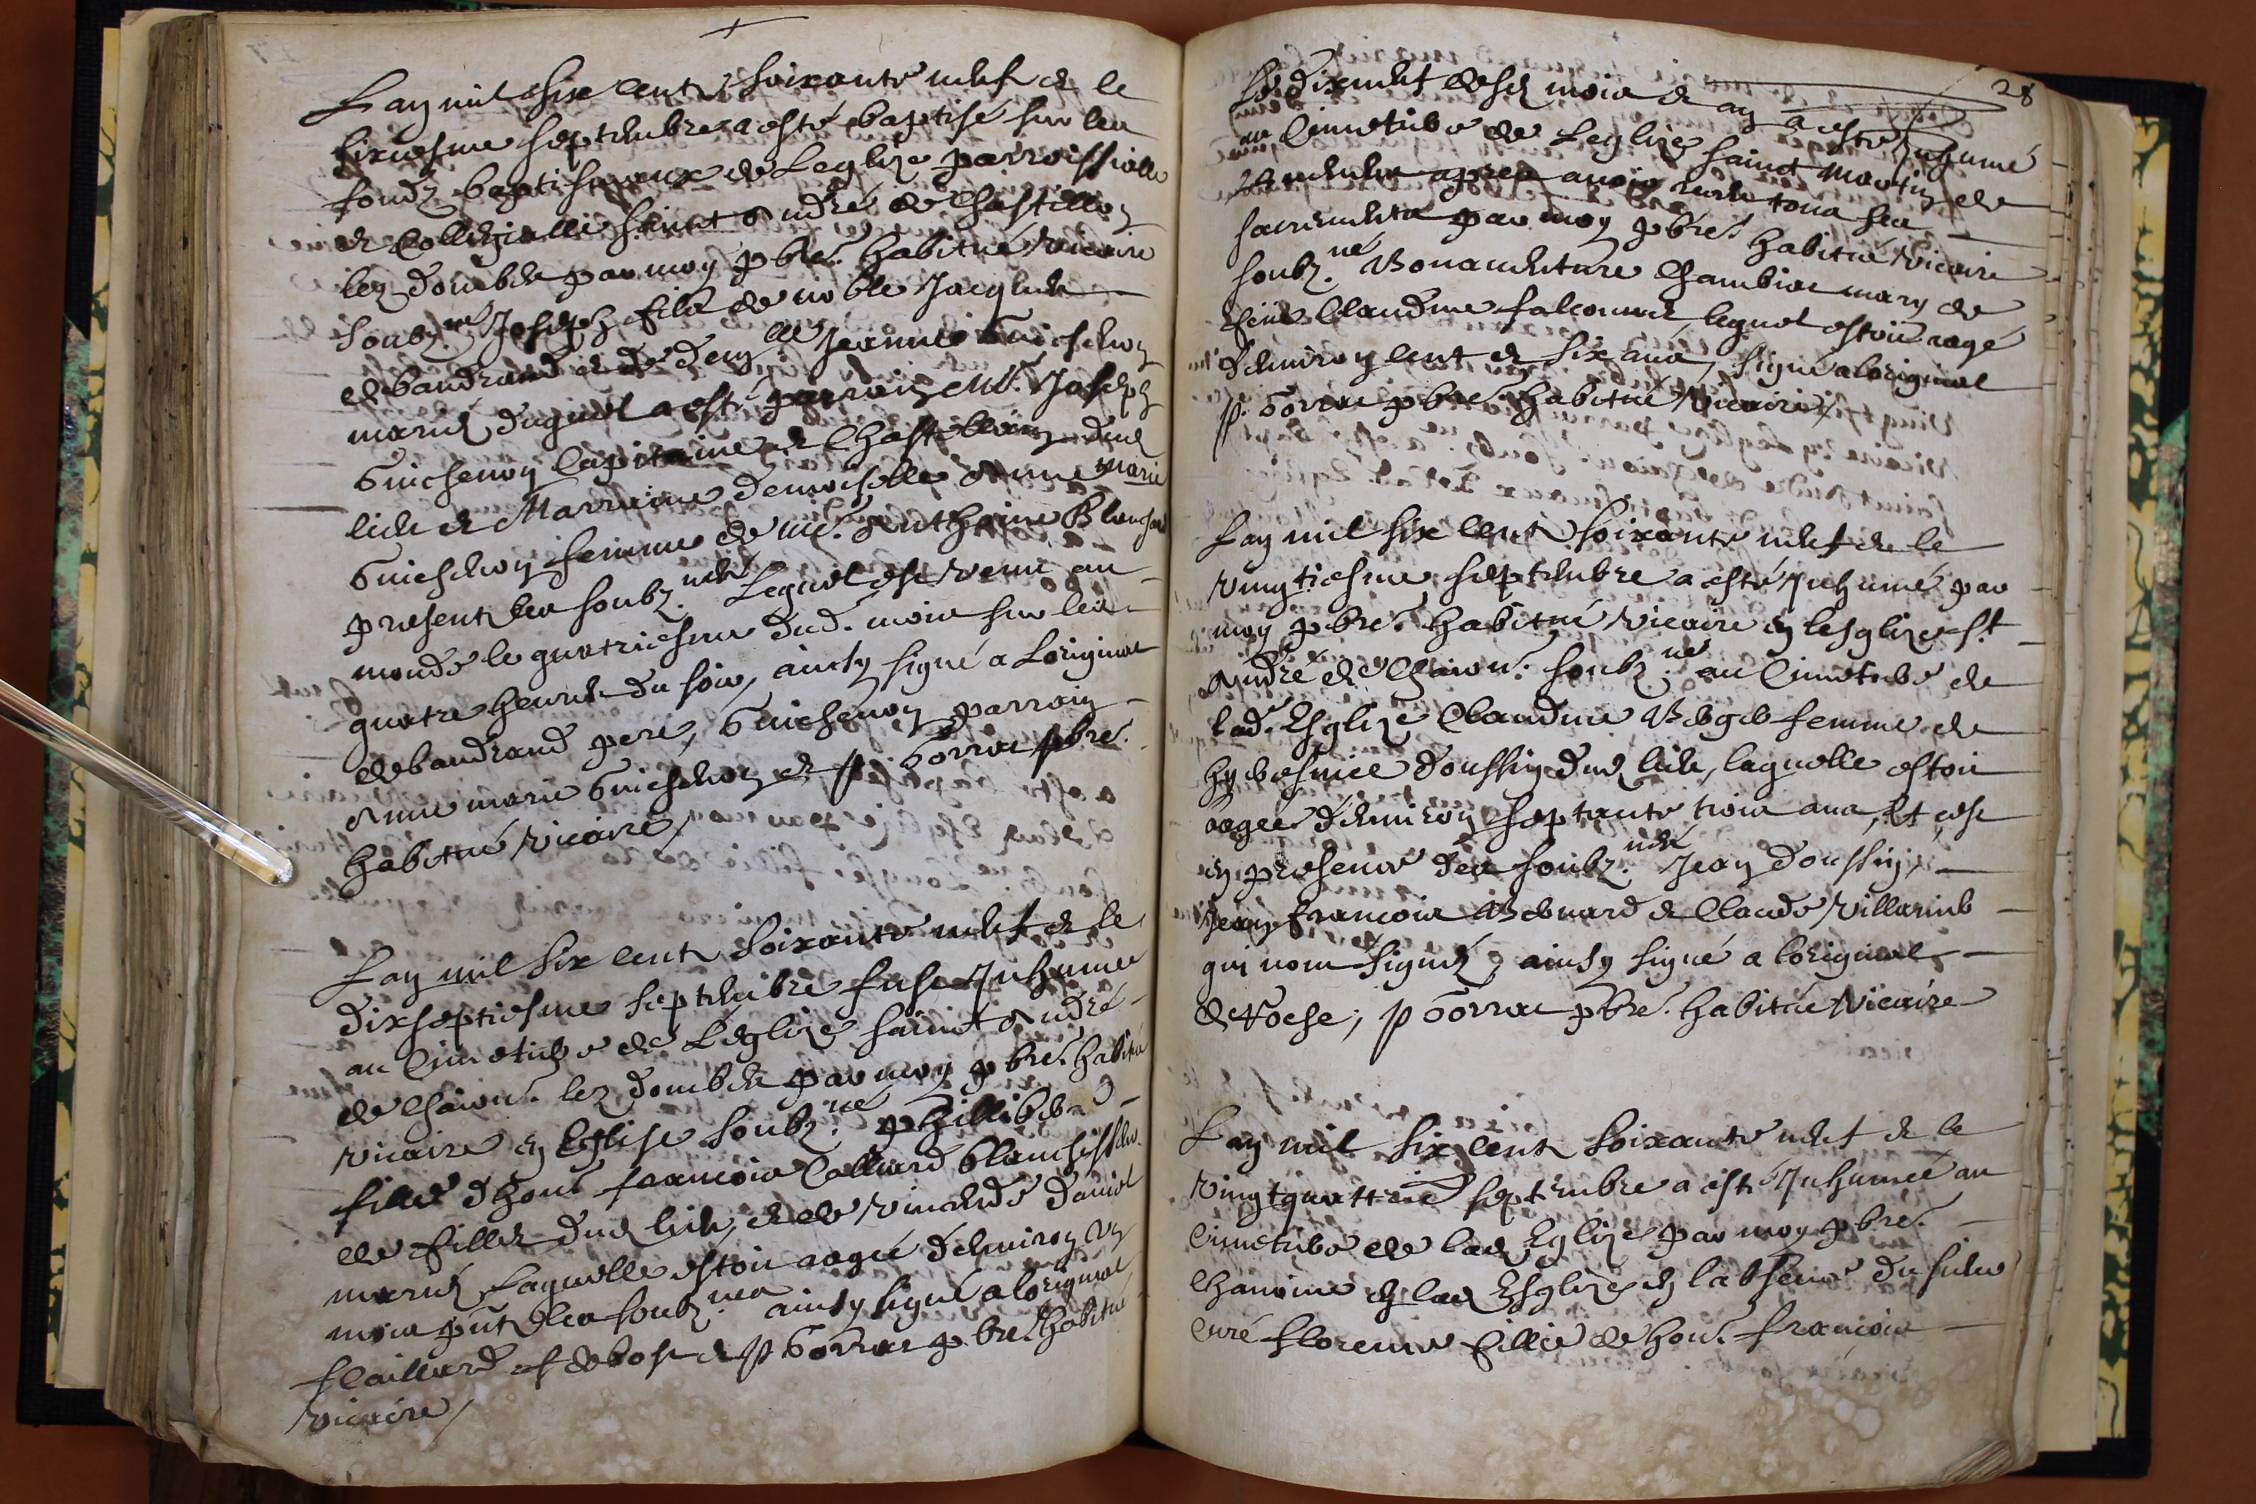 Lan mil six cent soixante neuf et le
sixiesme septembre a esté baptisé sur les
fondz baptismaux de Leglize parroissialle
et Collegialle saint André de Chastillon
lez dombes par moy pbre. habitué vicaire
soubz.né Joseph fils de noble Jacques
debaudrand et de dem.lle Jeanne Guichenon
mariez duquel a esté parrain Mr. Joseph
Guichenon Capitaine et Chastellain dud
lieu et Marraine demoiselle Anne marie
Guichenon femme de me. Anthoine Blanchard
present les soubz.nés Lequel est venu au
monde le quatriesme dud. mois sur les
quatre heures du soir, ainsy signé a Loriginal
debaudrand pere, Guichenon parrain
Anne marie Guichenon et P Gorrat pbre.
habitué vicaire /
Lan mil six cent soixante neuf et le
dixseptiesme septembre fust Inhumee
au Cimetiere de Léglize sainct André
de Chaon. lez dombes par moy pbre. habitué
vicaire en Eglise soubz.né phillibde
fille dhon. francois Collard blanchisseur
de filles dud lieu, et de
mariez, Laquelle estoit aagée denviron un
mois pnt les soubz.nes ainsy signé a loriginal
f Caillard et P Gorrat pbre. habitué
vicaire /
28
Le dixneuf desd mois et an a esté Inhumé
au Cimetiere de Leglize saint Martin de
apres avoir receu tous ses
sacrements par moy pbre. habitué vicaire
soubz.né Bonaventure Chambiat mary de
feue Claudine falconnet, lequel estoit aagé
denviron cent et six ans, signé aloriginal
P. Gorrat pbre. habitué vicaire /
Lan mil six cent soixante neuf et le
vingtiesme septembre a esté Inhumé par
moy pbre. habitué vicaire en lesglize st
André de Chaon. soubz.né au Cimetiere de
lad. Esglize Claudine Verger femme de
douffin dud lieu, laquelle estoit
aagée denviron septante trois ans, et c'est
en presence des soubz.nés Jean douffin,
Jean francois Bernard et Claude villarmb
qui nont signéz, ainsy signé a loriginal
P Gorrat pbre. habitué vicaire
Lan mil six cent soixante neuf et le
vingtquattre septembre a esté Inhumée au
Cimetiere de lad Eglize par moy pbre.
chanoine en lad Esglize en labsence du sieur
curé florence fillie de hon. francois